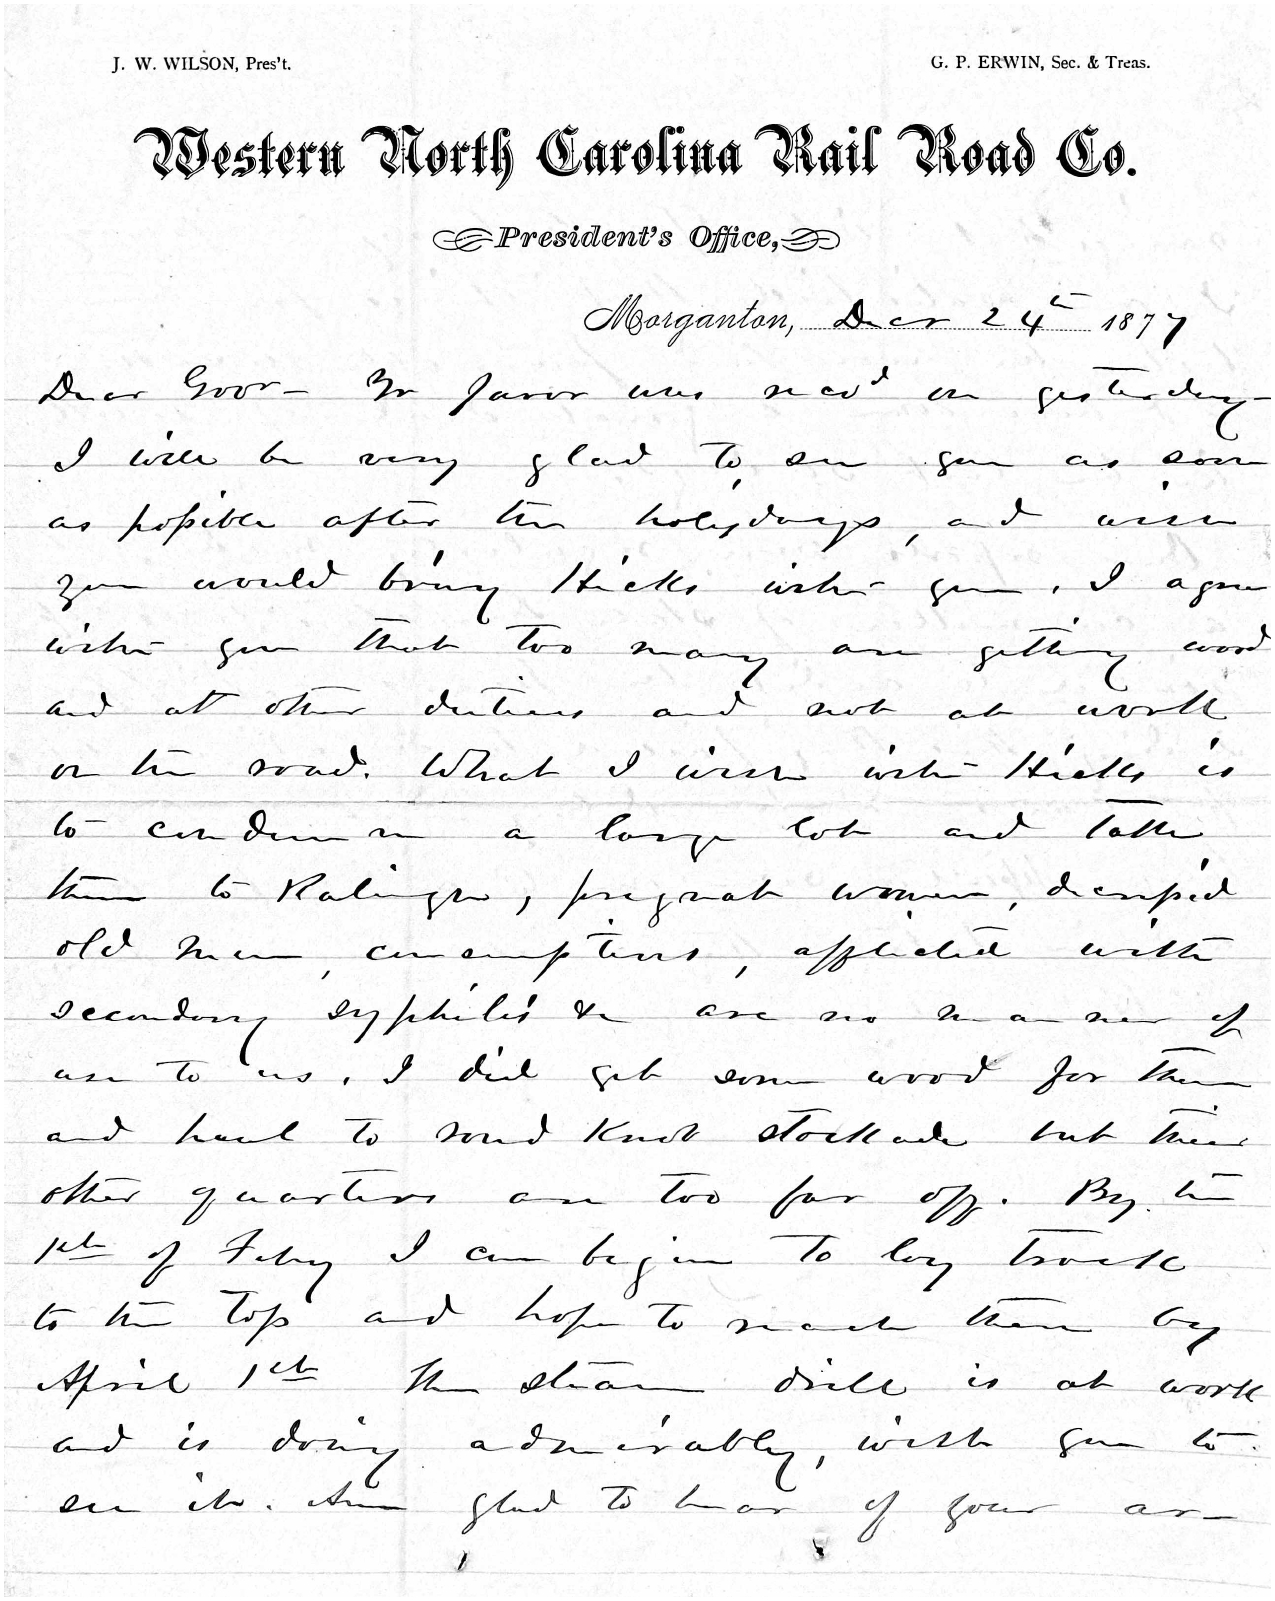 J. W. WILSON, Pres't.
G. P. ERWIN, Sec. & Treas.
Western North Carolina Rail Road Co.
President's Office,
Morganton, Decr 24th 1877
Dear Govr— Yr favor was recd on yesterday—
I will be very glad to see you as soon
as possible after the holydays, and wish
you would bring Hicks with you. I agree
with you that too many are getting wood
and at other duties and not at work
on the road. What I wish with Hicks is
to condemn a large lot and take
them to Raleigh, pregnat women, decrepid
old men, consumptives, afflicted with
secondary syphilis &c are no manner of
use to us. I did get some wood for them
and haul to round Knob stockade but their
other quarters are too far off. By the
1st of Feby I can begin to lay track
to the top and hope to reach there by
April 1st The steam drill is at work
and is doing admirably, wish you to
see it. Am glad to hear of your ar—